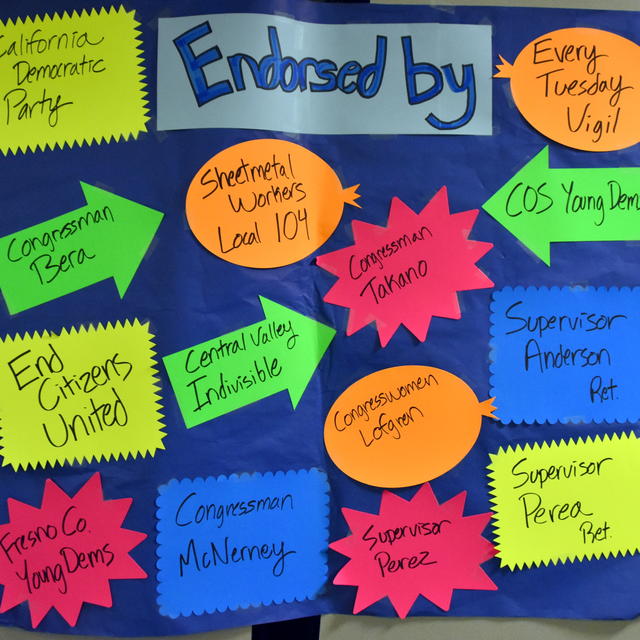 California
Democratic
Party
Endorsed by
Every
Tuesday
Vigil
Sheetmetal
Workers
Local 104
Congressman
Bera
Congressman
Takano
COS Young Dem
End
Citizens
United
Central Valley
Indivisible
Supervisor
Anderson
Ret.
Congresswomen
Lofgren
Fresno Co.
Young Dems
Congressman
McNerney
Supervisor
Perez
Supervisor
Perea
Ret.